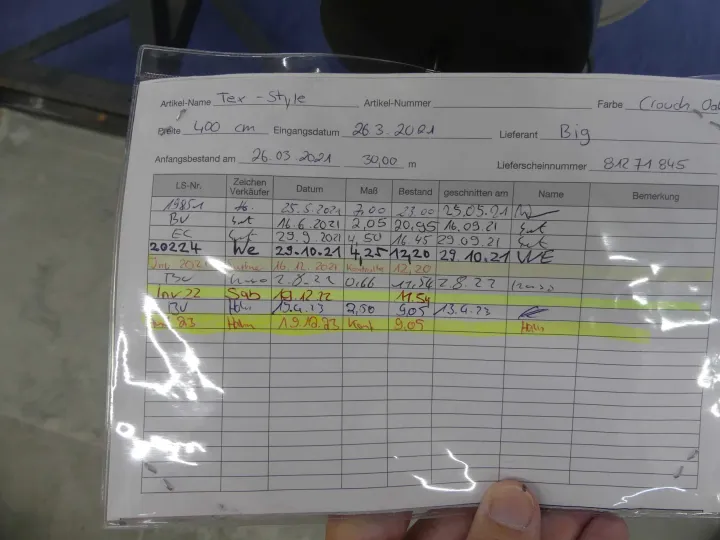 Artikel-Name Tex-Style Artikel-Nummer Farbe Crouch
400 cm Eingangsdatum 26 3. 2021 Lieferant Big
Anfangsbestand am 26.03 2021 30,00 m Lieferscheinnummer 81271845
LS-Nr. Zeichen Verkäufer Datum Maß Bestand geschnitten am Name Bemerkung
19851 25.5.2021 7,00 23.00 25.05.21
BV 16.6.2021 2,05 20,95 16.09.21
EC 29.9.2021 4,50 16.45 29.09.21
20224 We 29.10.21 4,25 12,20 29.10.21 WE
Inv. 2021 16.12.2021 12,20
BV 2.8.22 0,66 11,54 2.8.22
Inv 22 Sab 12.22 11.54
BV 13.4.23 2,50 9,05 13.4.23
23 19.12.23 9,05